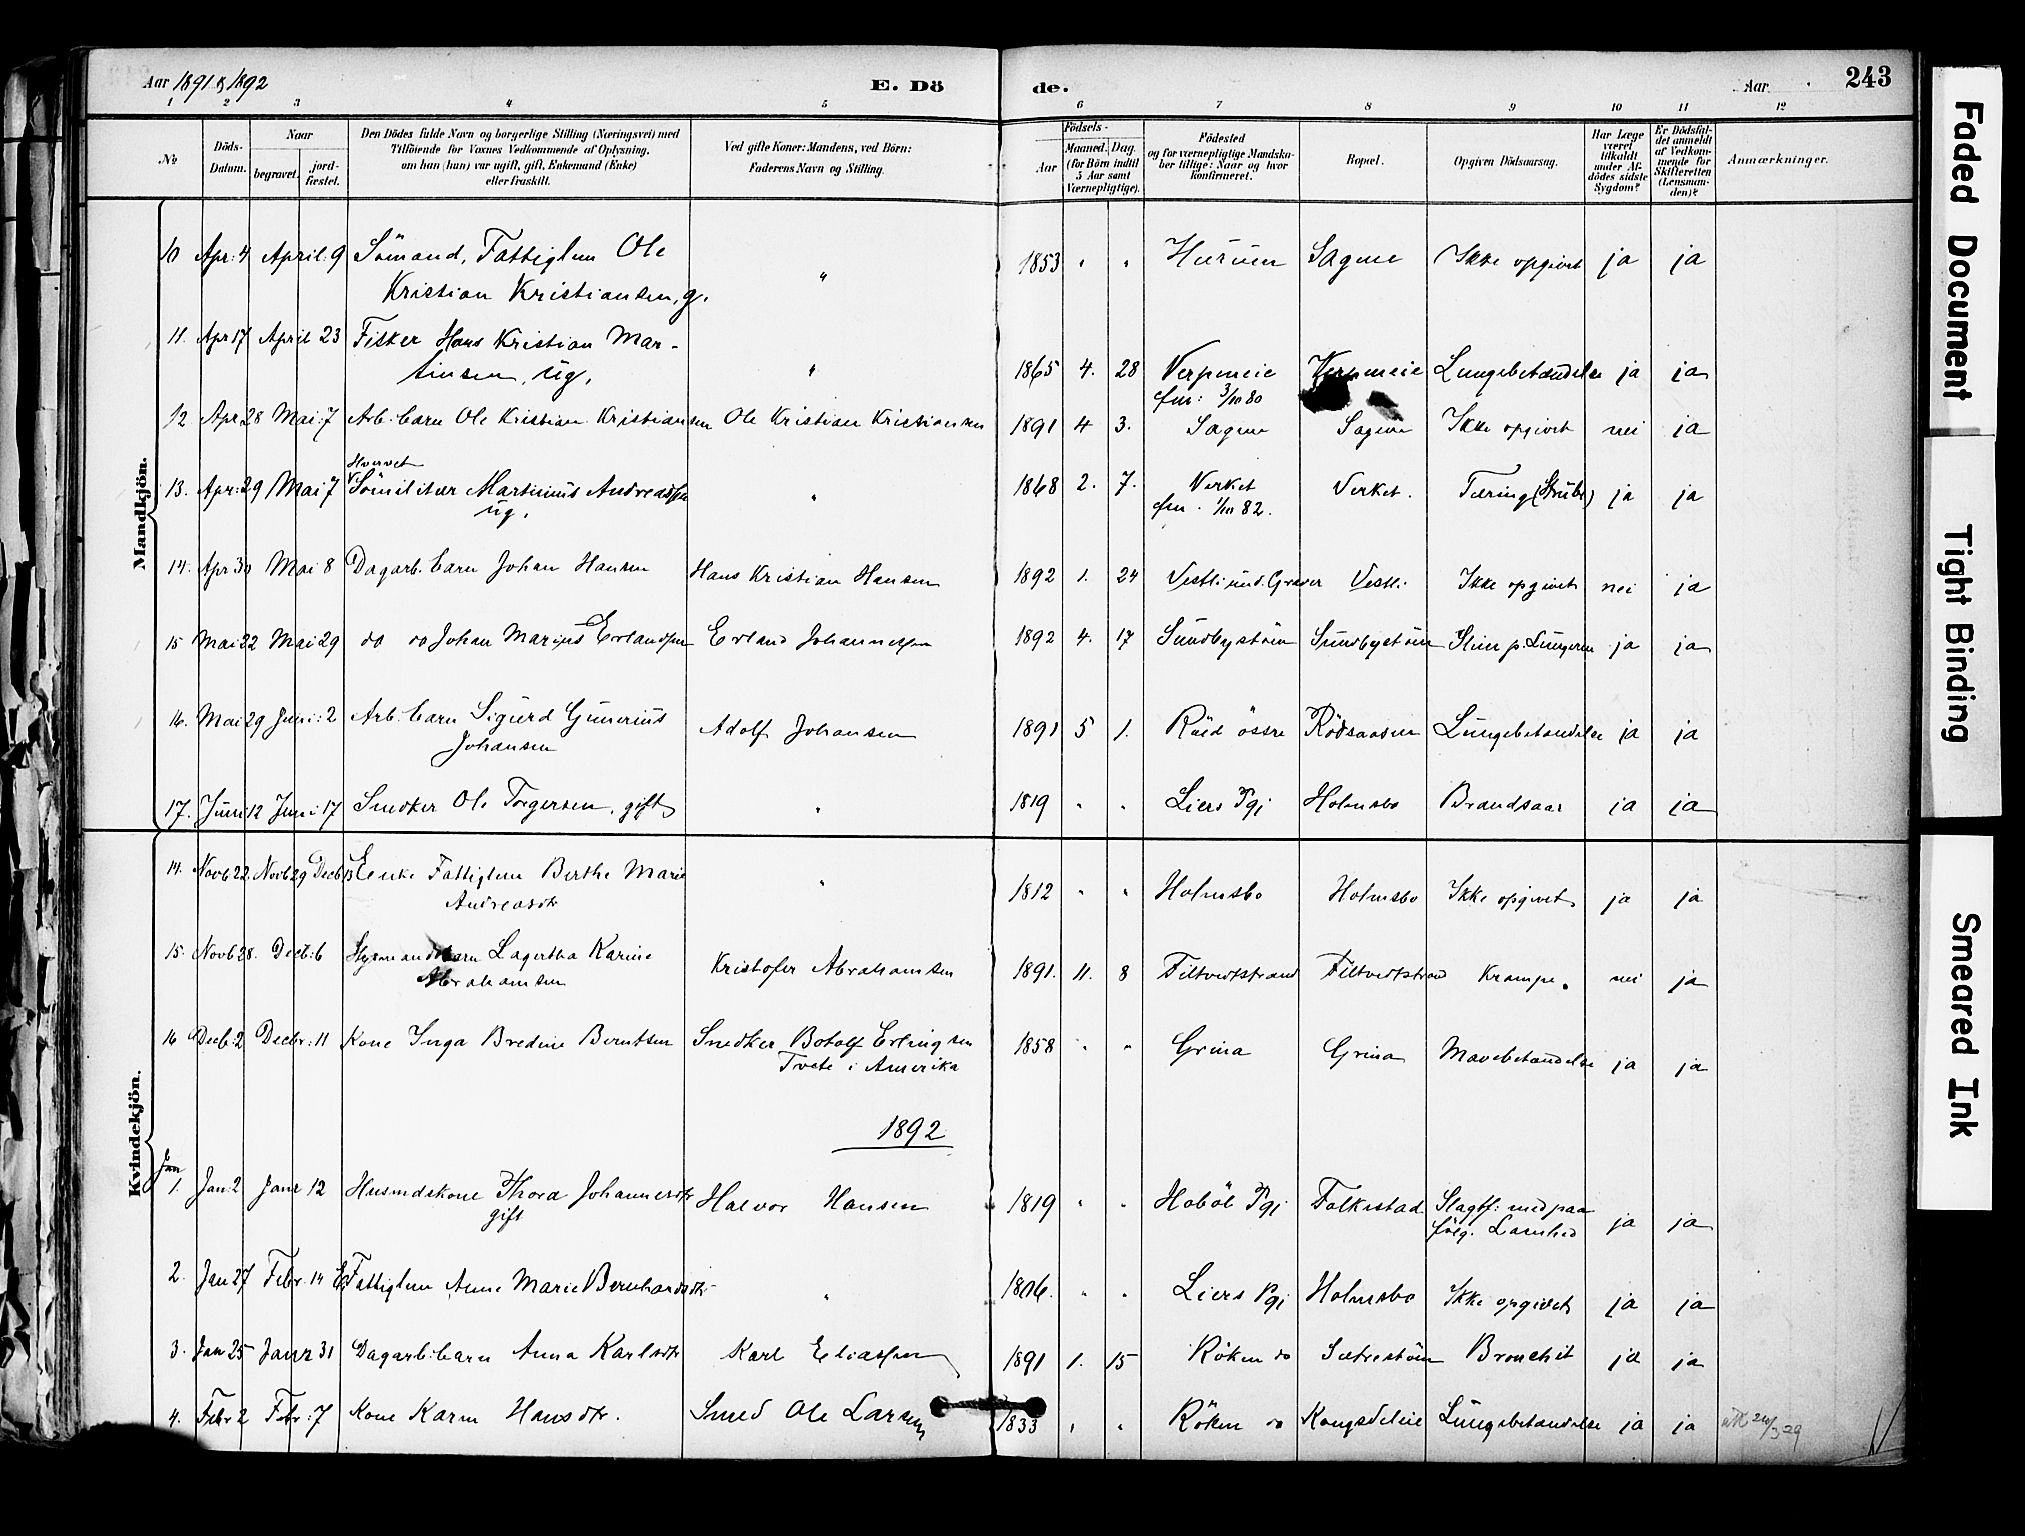 Aar 1891 & 1892 E. Dö de. Aar 243
1 2 3 4 5 6 7 8 9 10 11 12
No
Döds-Datum.
Naar
begravet. jordfæstet.
Den Dödes fulde Navn og borgerlige Stilling (Næringsvei) med
Tilföiende for Voxnes Vedkommende af Oplysning,
om han (hun) var ugift, gift, Enkemand (Enke)
eller fraskilt.
Ved gifte Koner: Mandens, ved Börn:
Faderens Navn og Stilling.
Födsels-
Aar Maaned. Dag.
(for Börn indtil
5 Aar samt
Værnepligtige).
Födested
og for værnepligtige Mandska-
ber tillige: Naar og hvor
konfirmeret.
Bopæl.
Opgiven Dödsaarsag.
Har Læge
været
tilkaldt
under Af-
dödes sidste
Sygdom?
Er Dödsfal-
det anmeldt
af Vedkom-
mende for
Skifteretten
(Lensman-
den)?
Anmærkninger.
Mandkjön.
10 Apr: 4 April: 9 Sömand, Fattiglem Ole " 1853 " " Hurum Sagene Ikke opgivet ja ja
Kristian Kristiansen, g.
11. Apr 17 April 23 Fisker Hans Kristian Mar-
tinsen, ug. " 1865 4. 28 Verpeneie Verpeneie Lungebetændelse ja ja
fm: 3/10 80
12 Apr 28 Mai: 7 Arb: barn Ole Kristian Kristiansen Ole Kristian Kristiansen 1891 4 3. Sagene Sagene Ikke opgivet nei ja
Hvervet
13. Apr: 29 Mai 7 Sömilitær Martinius Andreassen " 1868 2. 7. Verket Verket. Tæring (Strube) ja ja
ug. 82.
14. Apr 30 Mai 8 Dagarb. barn Johan Hansen Hans Kristian Hansen 1892 1. 24 Vestli und. Graver Vestli Ikke opgivet nei ja
15 Mai 22 Mai 29 do do Johan Marius Erlandsen Erland Johannesen 1892 4. 17 Sundbystöen Sundbystöen Sliim p. Lungerne ja ja
16. Mai 29 Juni: 2 Arb: barn Sigurd Gunerius Adolf Johansen 1891 5 1. Röed össre Rödsaasen Lungebetændelse ja ja
Johansen
17. Juni 12 Juni: 17 Snedker Ole Torgersen, gift " 1819 " " Liers Pgj Holmsbo Brandsaar ja ja
Kvindekjön.
14. Novb 22. Novb 29 Decb 13 Enke Fattiglem Berthe Marie " 1812 " " Holmsbo Holmsbo Ikke opgivet ja ja
Andreasdtr
15. Novb 28. Decb: 6 Styrmandsbarn Lagertha Karine Kristofer Abrahamsen 1891. 11. 8 Filtvedtstrand Filtvedtstrand Krampe. nei ja
Abrahamsen
16 Decb: 2 Decbr: 11 Kone Inga Bredine Berntsen Snedker Botolf Erlingsen 1858 " " Grina Grina Mavebetændelse ja ja
Tvete i Amerika
1892
1. Jan: 2 Janr 12 Husmdskone Thora Johannesdtr Halvor Hansen 1819 " " Hoböl Pgj Folkestad Slagtf: med paa
gift fölg. Lamhed ja ja
2. Jan 27 Febr. 14 E. Fattiglem Anne Marie Bernhardsdtr " 1806. " " Liers Pgj Holmsbo Ikke opgivet ja ja
3. Jan 25 Janr 31 Dagarb. barn Anna Karlsdtr Karl Eliassen 1891 1. 15 Röken do Sætrestöen Bronchit ja ja
4. Febr 2 Febr: 7 Kone Karen Hansdtr. Smed Ole Larsen 1833 " " Röken do Kongsdeleie Lungebetændelse ja ja
Faded Document
Tight Binding
Smeared Ink